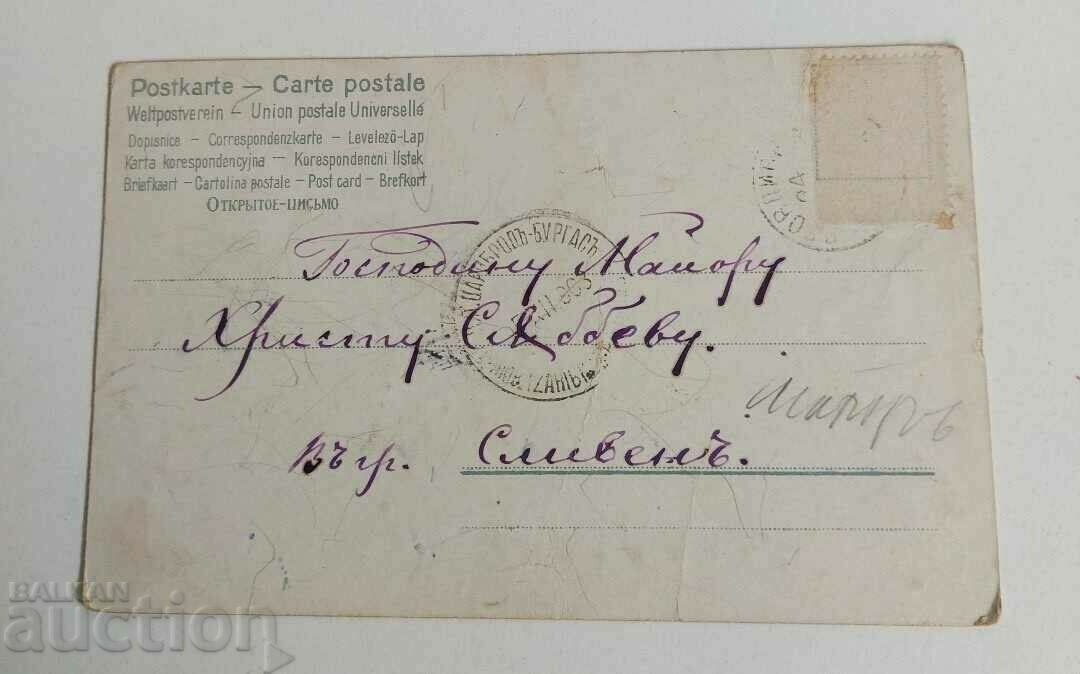 Postkarte – Carte postale
Weltpostverein – Union postale Universelle
Dopisnice – Correspondenzkarte – Levelező-Lap
Karta korespondencyjna – Korespondencni lístek
Briefkaart – Cartolina postale – Post card – Brefkort
ОТКРЫТОЕ-ПИСЬМО
ЦАРИБРОДЪ-БУРГАСЪ
Господину Майору
Христу
Маиоръ
Въ гр. Сливенъ.
BALKAN
auction